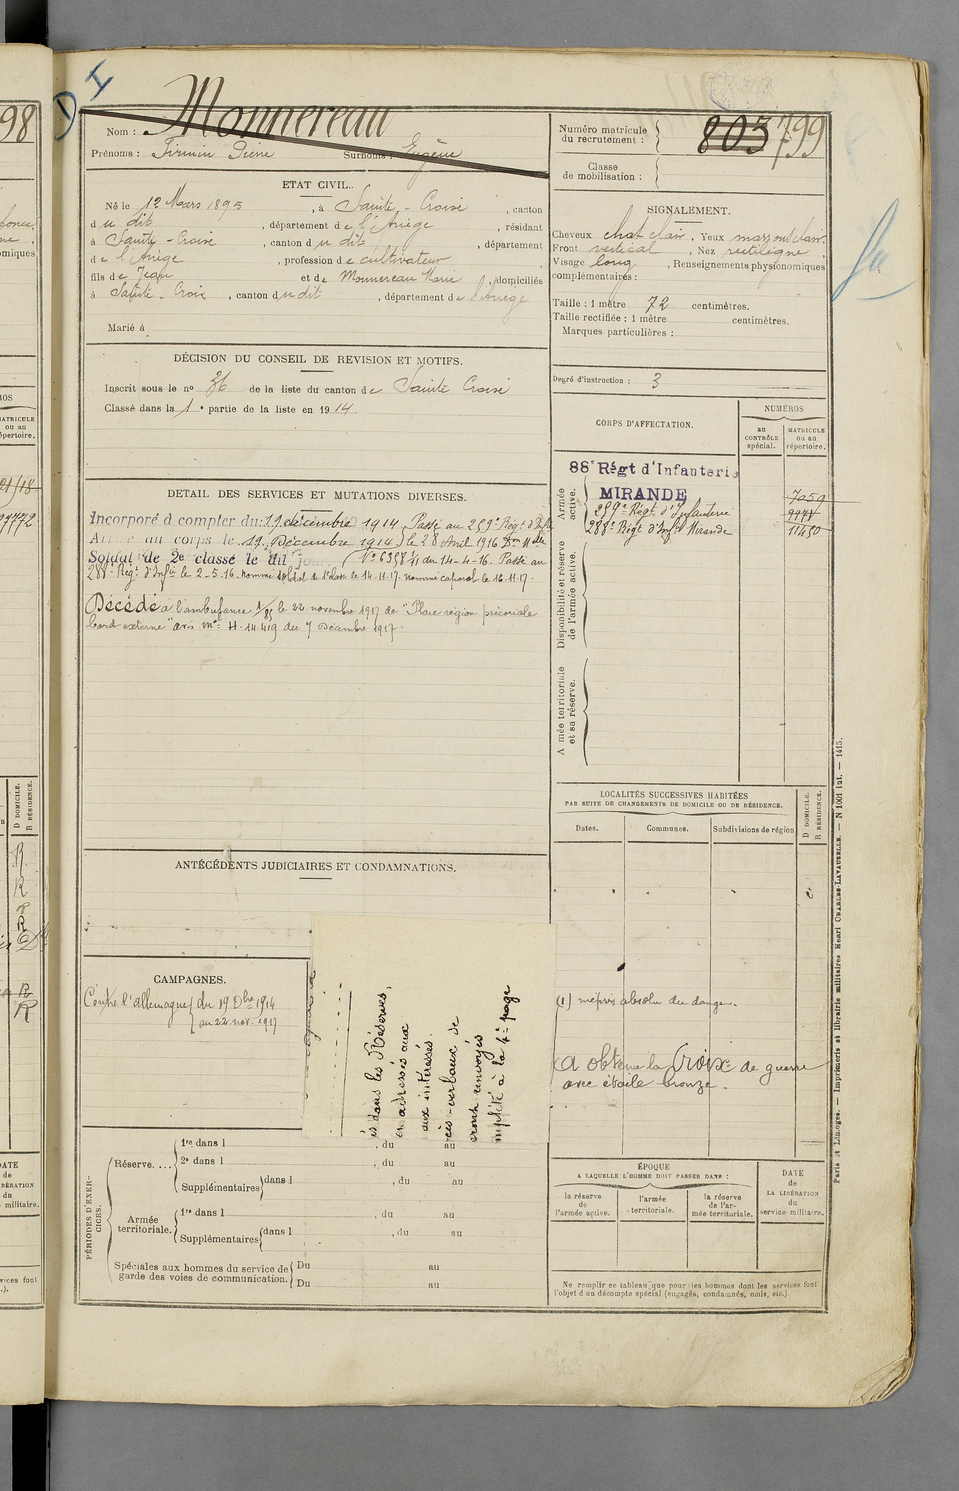 98
D I
Nom : Monnereau
Prénoms : Firmin Pierre Surnoms : Eugène
ETAT CIVIL.
Né le 12 Mars 1895 , à Sainte-Croix , canton
du dit , département de l'Ariège , résidant
à Sainte-Croix , canton du dit , département
de l'Ariège , profession de cultivateur
fils de Jean et de Monnereau Marie , domiciliés
à Sainte-Croix , canton du dit , département de l'Ariège
Marié à
DÉCISION DU CONSEIL DE REVISION ET MOTIFS.
Inscrit sous le no 36 de la liste du canton de Sainte Croix
Classé dans la 1e partie de la liste en 1914.
DETAIL DES SERVICES ET MUTATIONS DIVERSES.
Incorporé à compter du: 19 décembre 1914, Passé au 259e Régt d'Infie
Arrivé au corps le 19 Décembre 1914 ) le 28 Avril 1916
Soldat de 2e classe le dit jour ( No 6358 1/11 du 14-4-16. Passé au
288e Régt d'Infie le 2-5-16. nommé soldat de 1e classe le 14-11-17. nommé caporal le 16-11-17.
Décédé à l'ambulance 1/85 le 22 novembre 1917 de "Plaie région précordiale
bord externe" avis mel H-14.419 du 7 Décembre 1917.
ANTÉCÉDENTS JUDICIAIRES ET CONDAMNATIONS.
CAMPAGNES.
Contre l'allemagne { du 19 Dbre 1914
{ au 22 nov. 1917
és dans les Réserves,
adressés aux
aux intéressés.
cès-verbaux de
eront renvoyés
mplété à la 4e page
PÉRIODES D'EXERCICES.
Réserve.... 1re dans l , du au
2e dans l , du au
Supplémentaires dans l , du au
Armée territoriale. 1re dans l , du au
Supplémentaires dans l , du au
Spéciales aux hommes du service de garde des voies de communication. Du au
Du au
Numéro matricule du recrutement : 803 799
Classe de mobilisation :
SIGNALEMENT.
Cheveux chat clair, Yeux marron clair.
Front vertical , Nez rectiligne ,
Visage long , Renseignements physionomiques
complémentaires :
Taille : 1 mètre 72 centimètres.
Taille rectifiée : 1 mètre centimètres.
Marques particulières :
Degré d'instruction : 3
CORPS D'AFFECTATION.
NUMÉROS
au CONTRÔLE spécial.
MATRICULE ou au répertoire.
Armée active.
88e Régt d'Infanterie
MIRANDE 7059
259e Régt d'Infanterie
288e Régt d'Infie Mirande 11450
Disponibilité et réserve de l'armée active.
Armée territoriale et sa réserve.
LOCALITÉS SUCCESSIVES HABITÉES
PAR SUITE DE CHANGEMENTS DE DOMICILE OU DE RÉSIDENCE.
Dates. Communes. Subdivisions de région
D DOMICILE.
R RÉSIDENCE.
(1) mépris absolu du danger.
A obtenu la Croix de guerre
avec étoile bronze.
ÉPOQUE
A LAQUELLE L'HOMME DOIT PASSER DANS :
la réserve de l'armée active.
l'armée territoriale.
la réserve de l'armée territoriale.
DATE de LA LIBÉRATION du service militaire.
Ne remplir ce tableau que pour les hommes dont les services font
l'objet d'un décompte spécial (engagés, condamnés, omis, etc.).
Paris et Limoges. — Imprimerie et librairie militaires Henri CHARLES-LAVAUZELLE. — N 1001 int. — 1415.